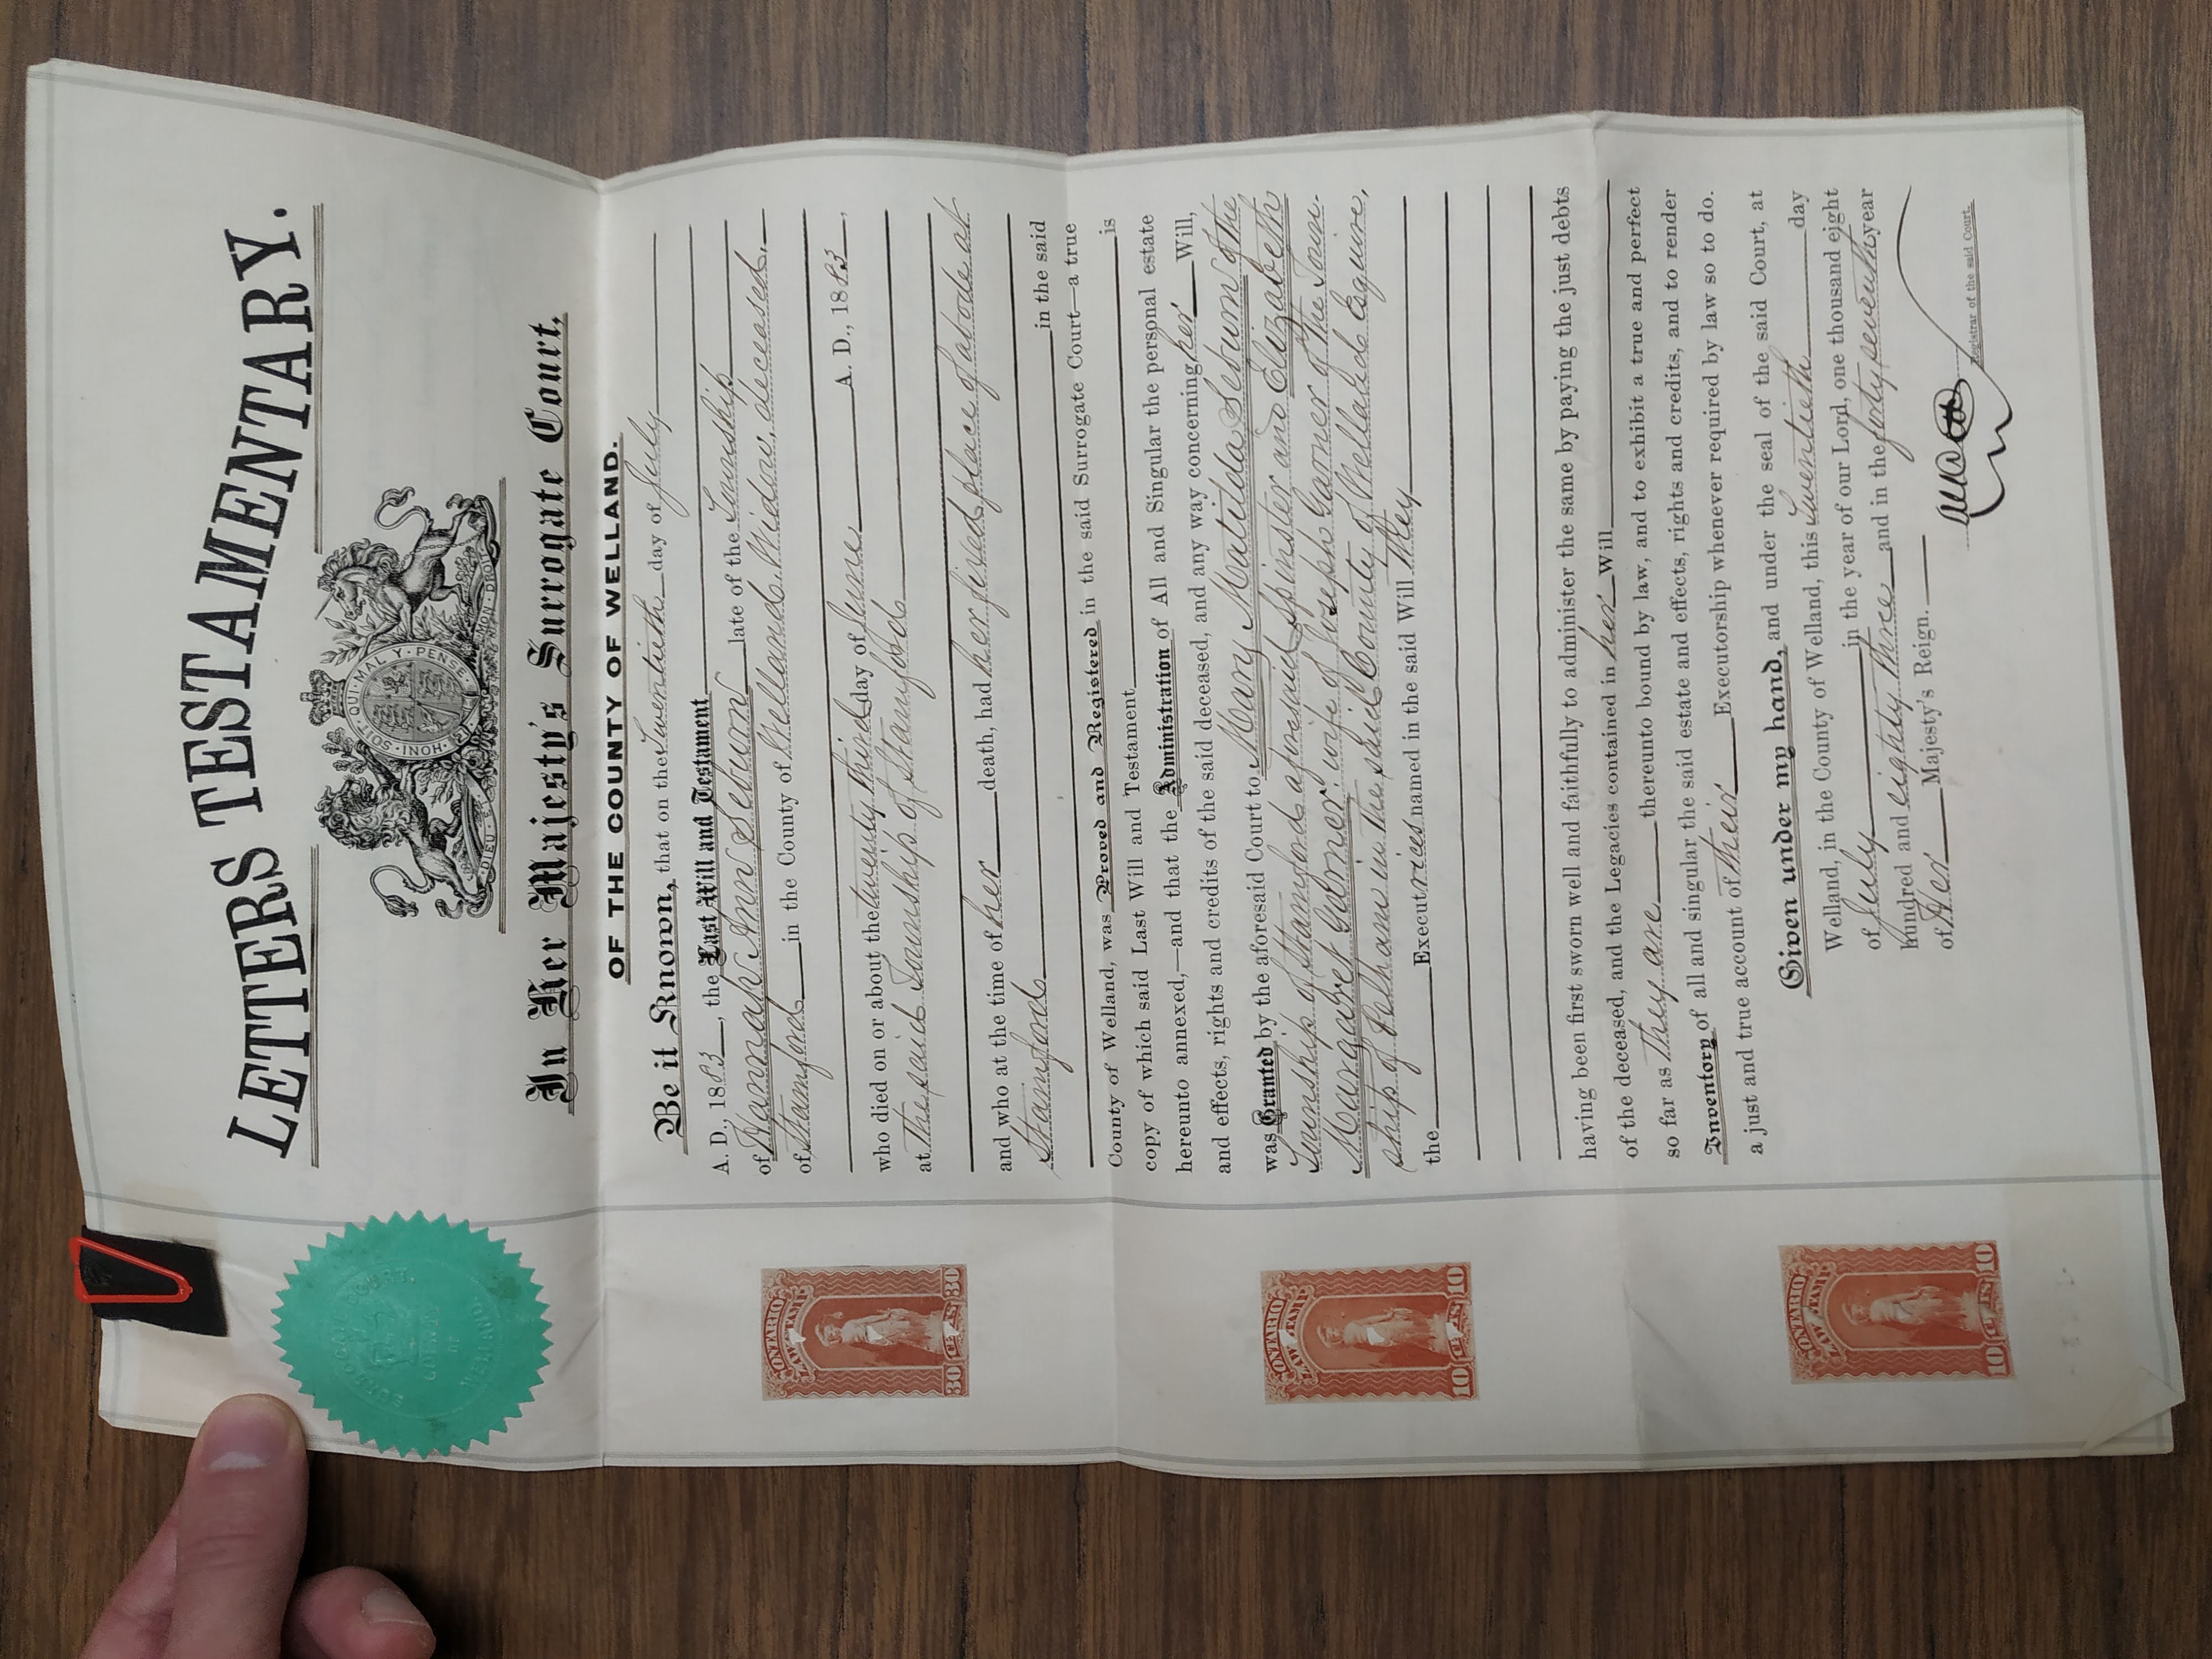 LETTERS TESTAMENTARY.
HONI · SOIT · QUI · MAL · Y · PENSE
DIEU · ET · MON · DROIT
In Her Majesty's Surrogate Court,
OF THE COUNTY OF WELLAND.
Be it Known, that on the Twentieth day of July
A. D., 1883, the Last Will and Testament
of Hannah Ann late of the Township
of Stamford in the County of Welland, Widow, deceased,
who died on or about the twenty third day of June A. D., 1883,
at the said Township of Stamford
and who at the time of her death, had her fixed place of abode at
Stamford
in the said
County of Welland, was Proved and Registered in the said Surrogate Court—a true
copy of which said Last Will and Testament is
hereunto annexed,—and that the Administration of All and Singular the personal estate
and effects, rights and credits of the said deceased, and any way concerning her Will,
was Granted by the aforesaid Court to Mary Matilda of the
Township of Stamford aforesaid Spinster and Elizabeth
Margaret Garner, wife of Joseph Garner of the Town-
ship of Pelham in the said County of Welland Esquire,
the Executrices named in the said Will they
having been first sworn well and faithfully to administer the same by paying the just debts
of the deceased, and the Legacies contained in her Will
so far as they are thereunto bound by law, and to exhibit a true and perfect
Inventory of all and singular the said estate and effects, rights and credits, and to render
a just and true account of their Executorship whenever required by law so to do.
Given under my hand, and under the seal of the said Court, at
Welland, in the County of Welland, this Twentieth day
of July in the year of our Lord, one thousand eight
hundred and eighty three and in the forty seventh year
of Her Majesty's Reign.
Registrar of the said Court.
SURROGATE COURT
COUNTY
OF
WELLAND
ONTARIO
LAW STAMP
30 CENTS 30
ONTARIO
LAW STAMP
10 CENTS 10
ONTARIO
LAW STAMP
10 CENTS 10